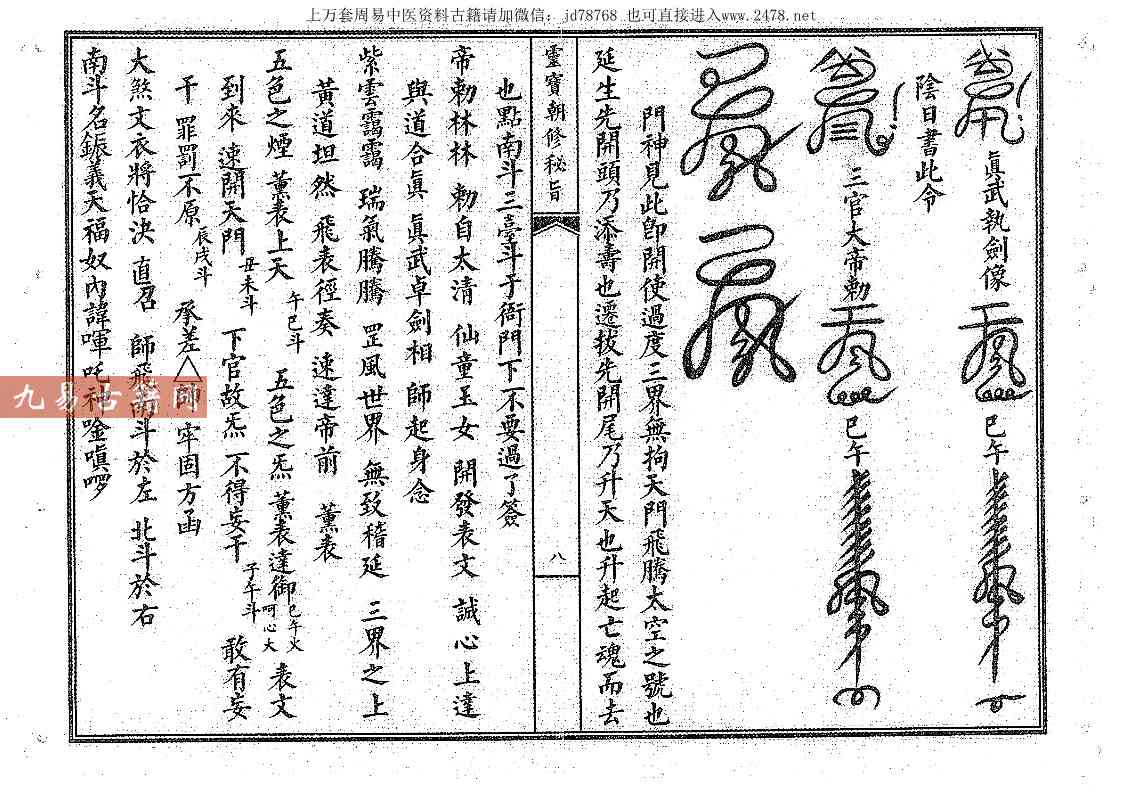 上万套周易中医资料古籍请加微信：jd78768 也可直接进入www.2478.net
眞武執劍像 巳午
陰日書此令
三官大帝勅 巳午
門神見此卽開使過度三界無拘天門飛騰太空之號也
延生先開頭乃添壽也遷拔先開尾乃升天也升起亡魂而去
靈寶朝修秘旨
八
也點南斗三臺斗于衙門下不要過了簽
帝勅林林 勅自太清 仙童玉女 開發表文 誠心上達
與道合眞 眞武卓劍相 師起身念
紫雲靄靄 瑞氣騰騰 罡風世界 無致稽延 三界之上
黃道坦然 飛表徑奏 速達帝前 薰表
五色之煙 薰表上天 午巳斗 五色之炁 薰表達御 巳午火 呵心火 表文
到來 速開天門 丑未斗 下官故炁 不得妄干 子午斗 敢有妄
干 罪罰不原 辰戌斗 承差 牢固方函
大煞文衣將恰決 直召 師飛南斗於左 北斗於右
南斗名鋠義天福奴內諱啤吒神唫嗔啰
九易古籍网